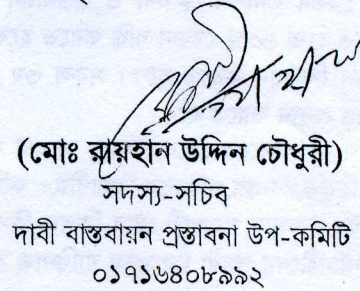 (মোঃ রায়হান উদ্দিন চৌধুরী)
সদস্য-সচিব
দাবী বাস্তবায়ন প্রস্তাবনা উপ-কমিটি
০১৭১৬৪০৮৯৯২